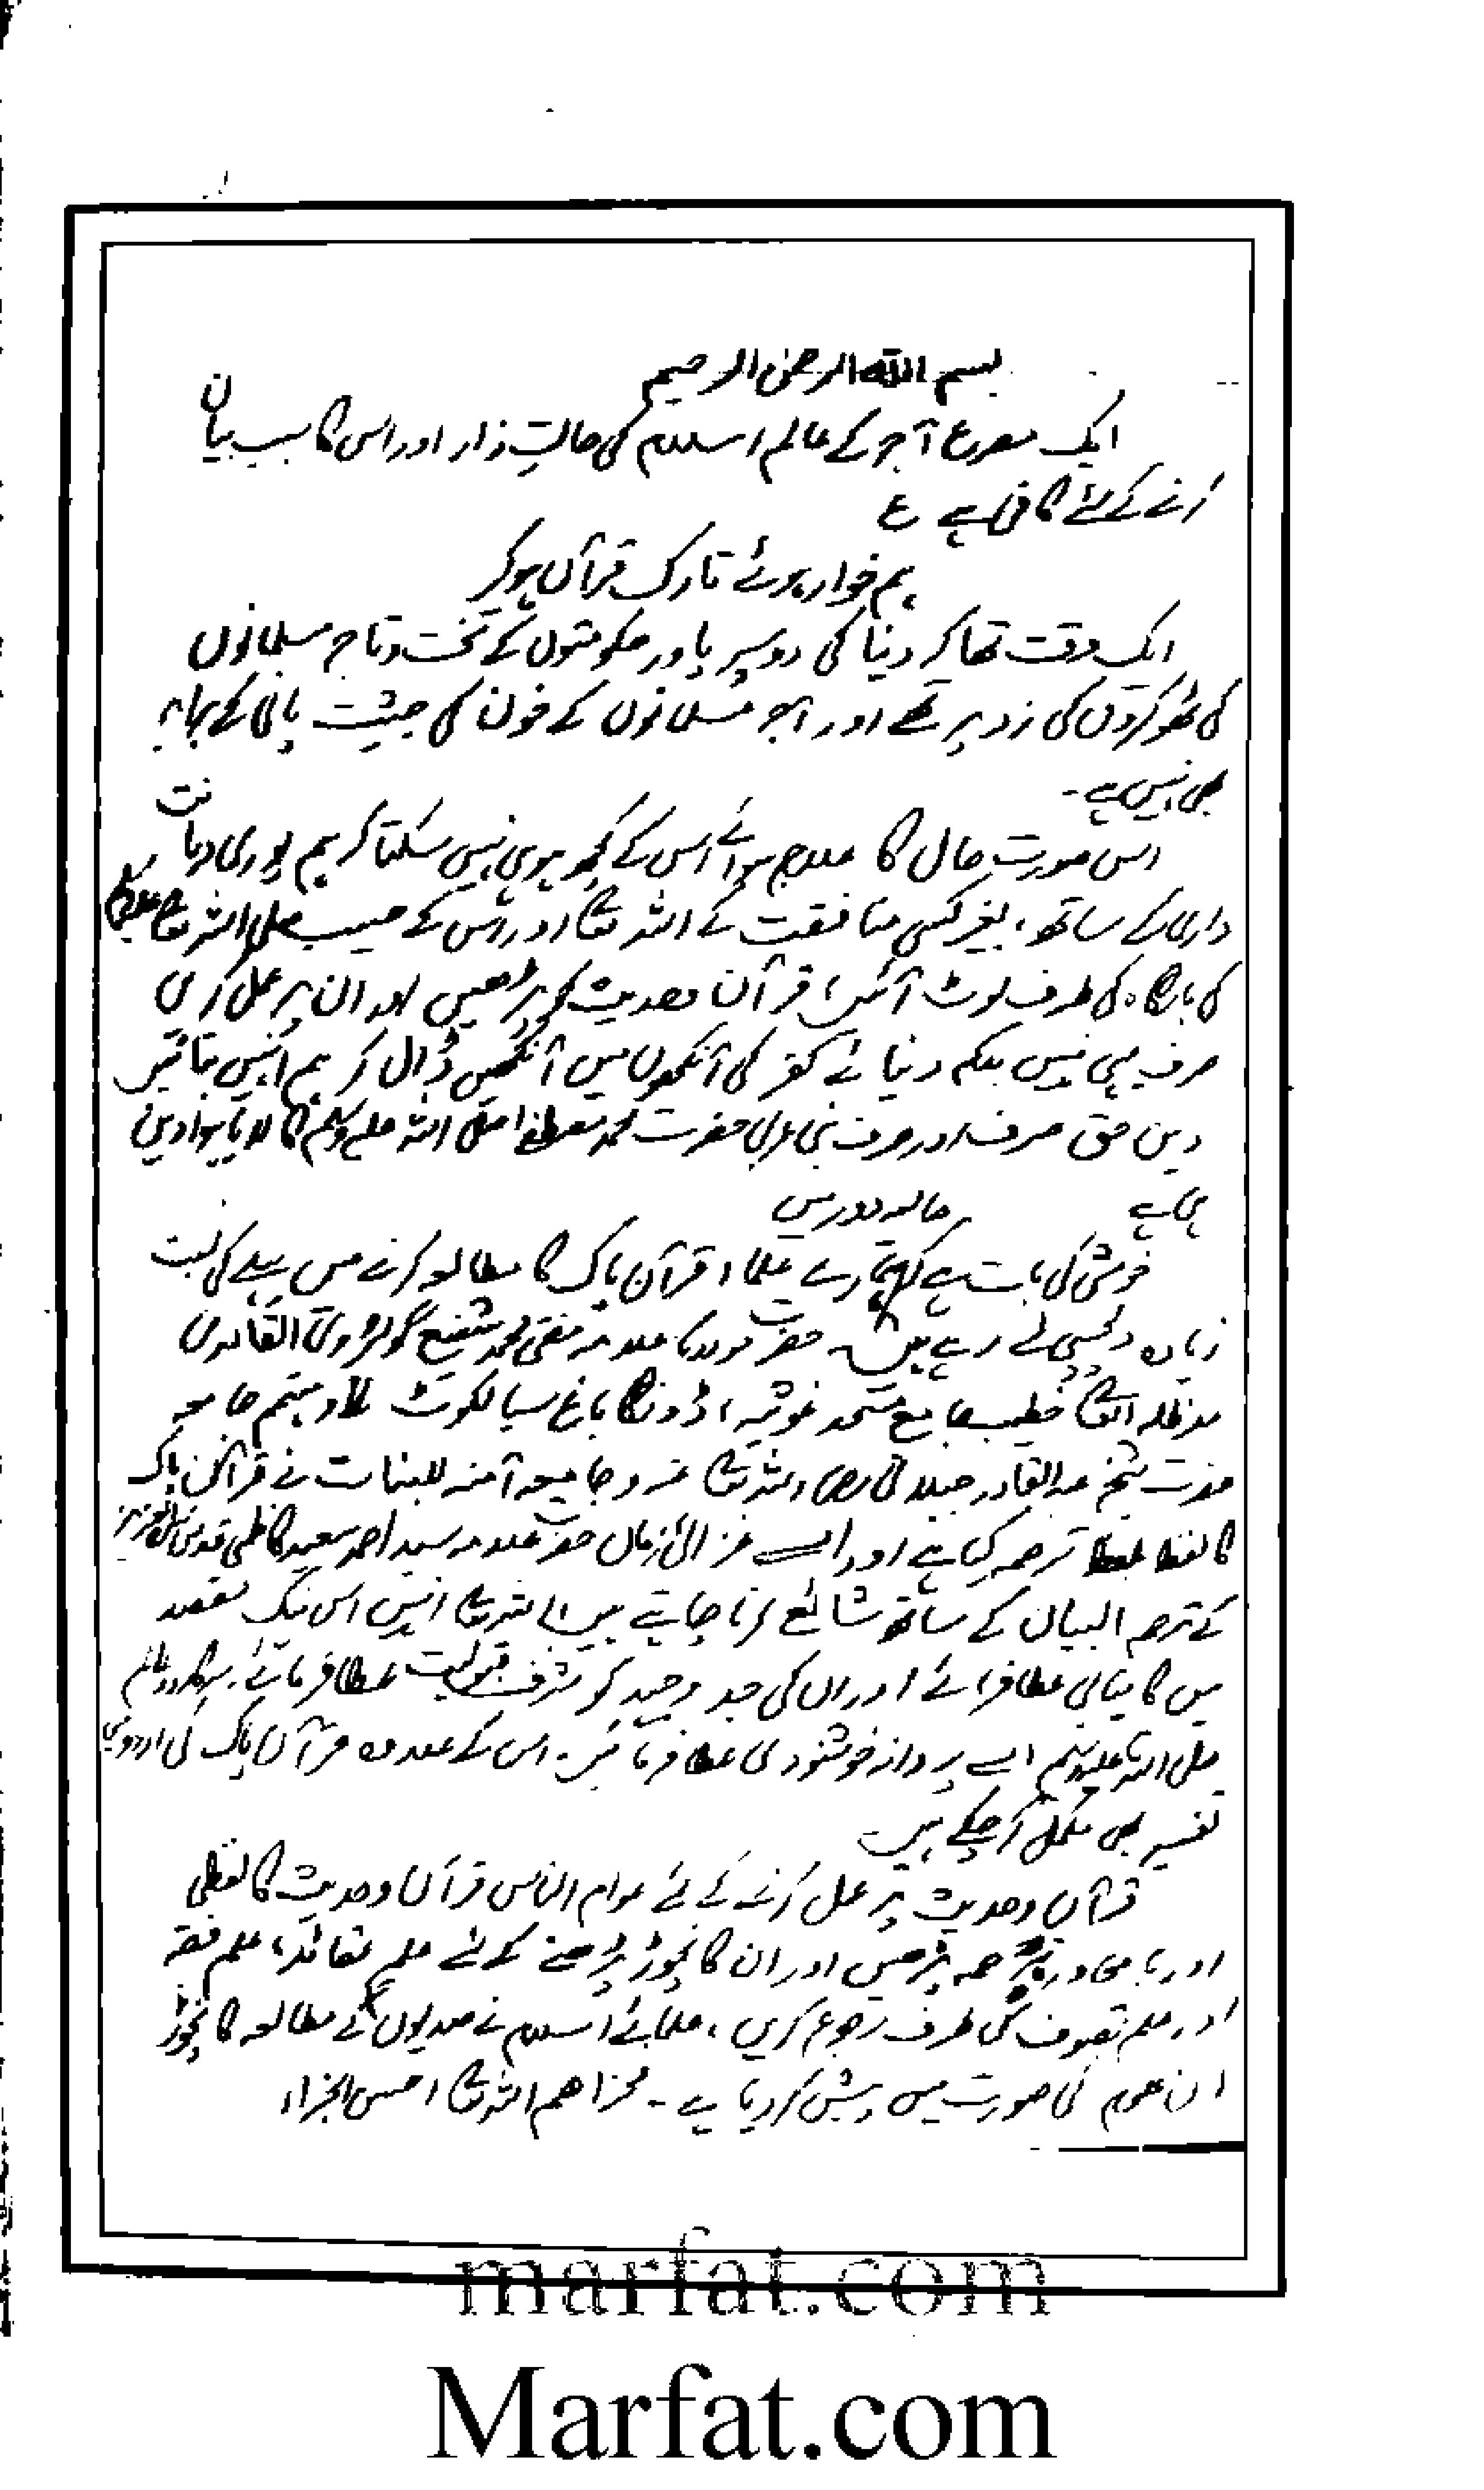 بسم اللہ الرحمن الرحیم
ایک مصرع آج کے عالم اسلام کی حالتِ زار اور اس کا سبب بیان
کرنے کے لئے کافی ہے ع
ہم خوار ہوئے تارک قرآں ہو کر
ایک وقت تھا کہ دنیا کی دو سپر پاور حکومتوں کے تخت و تاج مسلمانوں
کی ٹھوکروں کی زد پر تھے اور آج مسلمانوں کے خون کی حیثیت پانی کے برابر
بھی نہیں ہے۔
اس صورت حال کا علاج سوائے اس کے کچھ ہو ہی نہیں سکتا کہ ہم پوری دیانت
داری کے ساتھ، بغیر کسی منافقت کے اللہ تعالیٰ اور اس کے حبیب صلی اللہ تعالیٰ علیہ وسلم
کی بارگاہ کی طرف لوٹ آئیں، قرآن و حدیث کو پڑھیں اور ان پر عمل کریں
صرف یہی نہیں بلکہ دنیائے کفر کی آنکھوں میں آنکھیں ڈال کر ہم انہیں بتائیں
دین حق صرف اور صرف نبی عربی حضرت محمد مصطفےٰ صلی اللہ علیہ وسلم کا لایا ہوا دین
ہی ہے
حالیہ دور میں
خوشی کی بات ہے کہ ہمارے علماء قرآن پاک کا مطالعہ کرنے میں پہلے کی نسبت
زیادہ دلچسپی لے رہے ہیں۔ حضرت مولانا علامہ مفتی محمد شفیع گولڑوی القادری
مدظلہ العالی خطیب جامع مسجد غوثیہ، اڈو نگا باغ سیالکوٹ و مہتمم جامعہ
حضرت شیخ عبدالقادر جیلانی رضی اللہ تعالیٰ عنہ و جامعہ آمنہ للبنات نے قرآن پاک
کا لفظ بلفظ ترجمہ کیا ہے اور اسے غزالی زماں حضرت علامہ سید احمد سعید کاظمی قدس سرہ العزیز
کے ترجمہ البیان کے ساتھ شائع کرنا چاہتے ہیں اللہ تعالیٰ انہیں اس نیک مقصد
میں کامیابی عطا فرمائے اور ان کی جد و جہد کو شرف قبولیت عطا فرمائے، سرکار دو عالم
صلی اللہ تعالیٰ علیہ وسلم اسے پروانہ خوشنودی عطا فرمائیں۔ اس کے علاوہ قرآن پاک کی اردو میں
تفسیر بھی مکمل کر چکے ہیں۔
قرآن و حدیث پر عمل کرنے کے لئے عوام الناس قرآن و حدیث کا لفظی
اور بامحاورہ ترجمہ پڑھیں اور ان کا نچوڑ پڑھنے کے لئے علم عقائد، علم فقہ
اور علم تصوف کی طرف رجوع کریں، علمائے اسلام نے صدیوں کے مطالعہ کا نچوڑ
ان علوم کی صورت میں پیش کر دیا ہے۔ فجزاھم اللہ تعالیٰ احسن الجزاء
marfat.com
Marfat.com